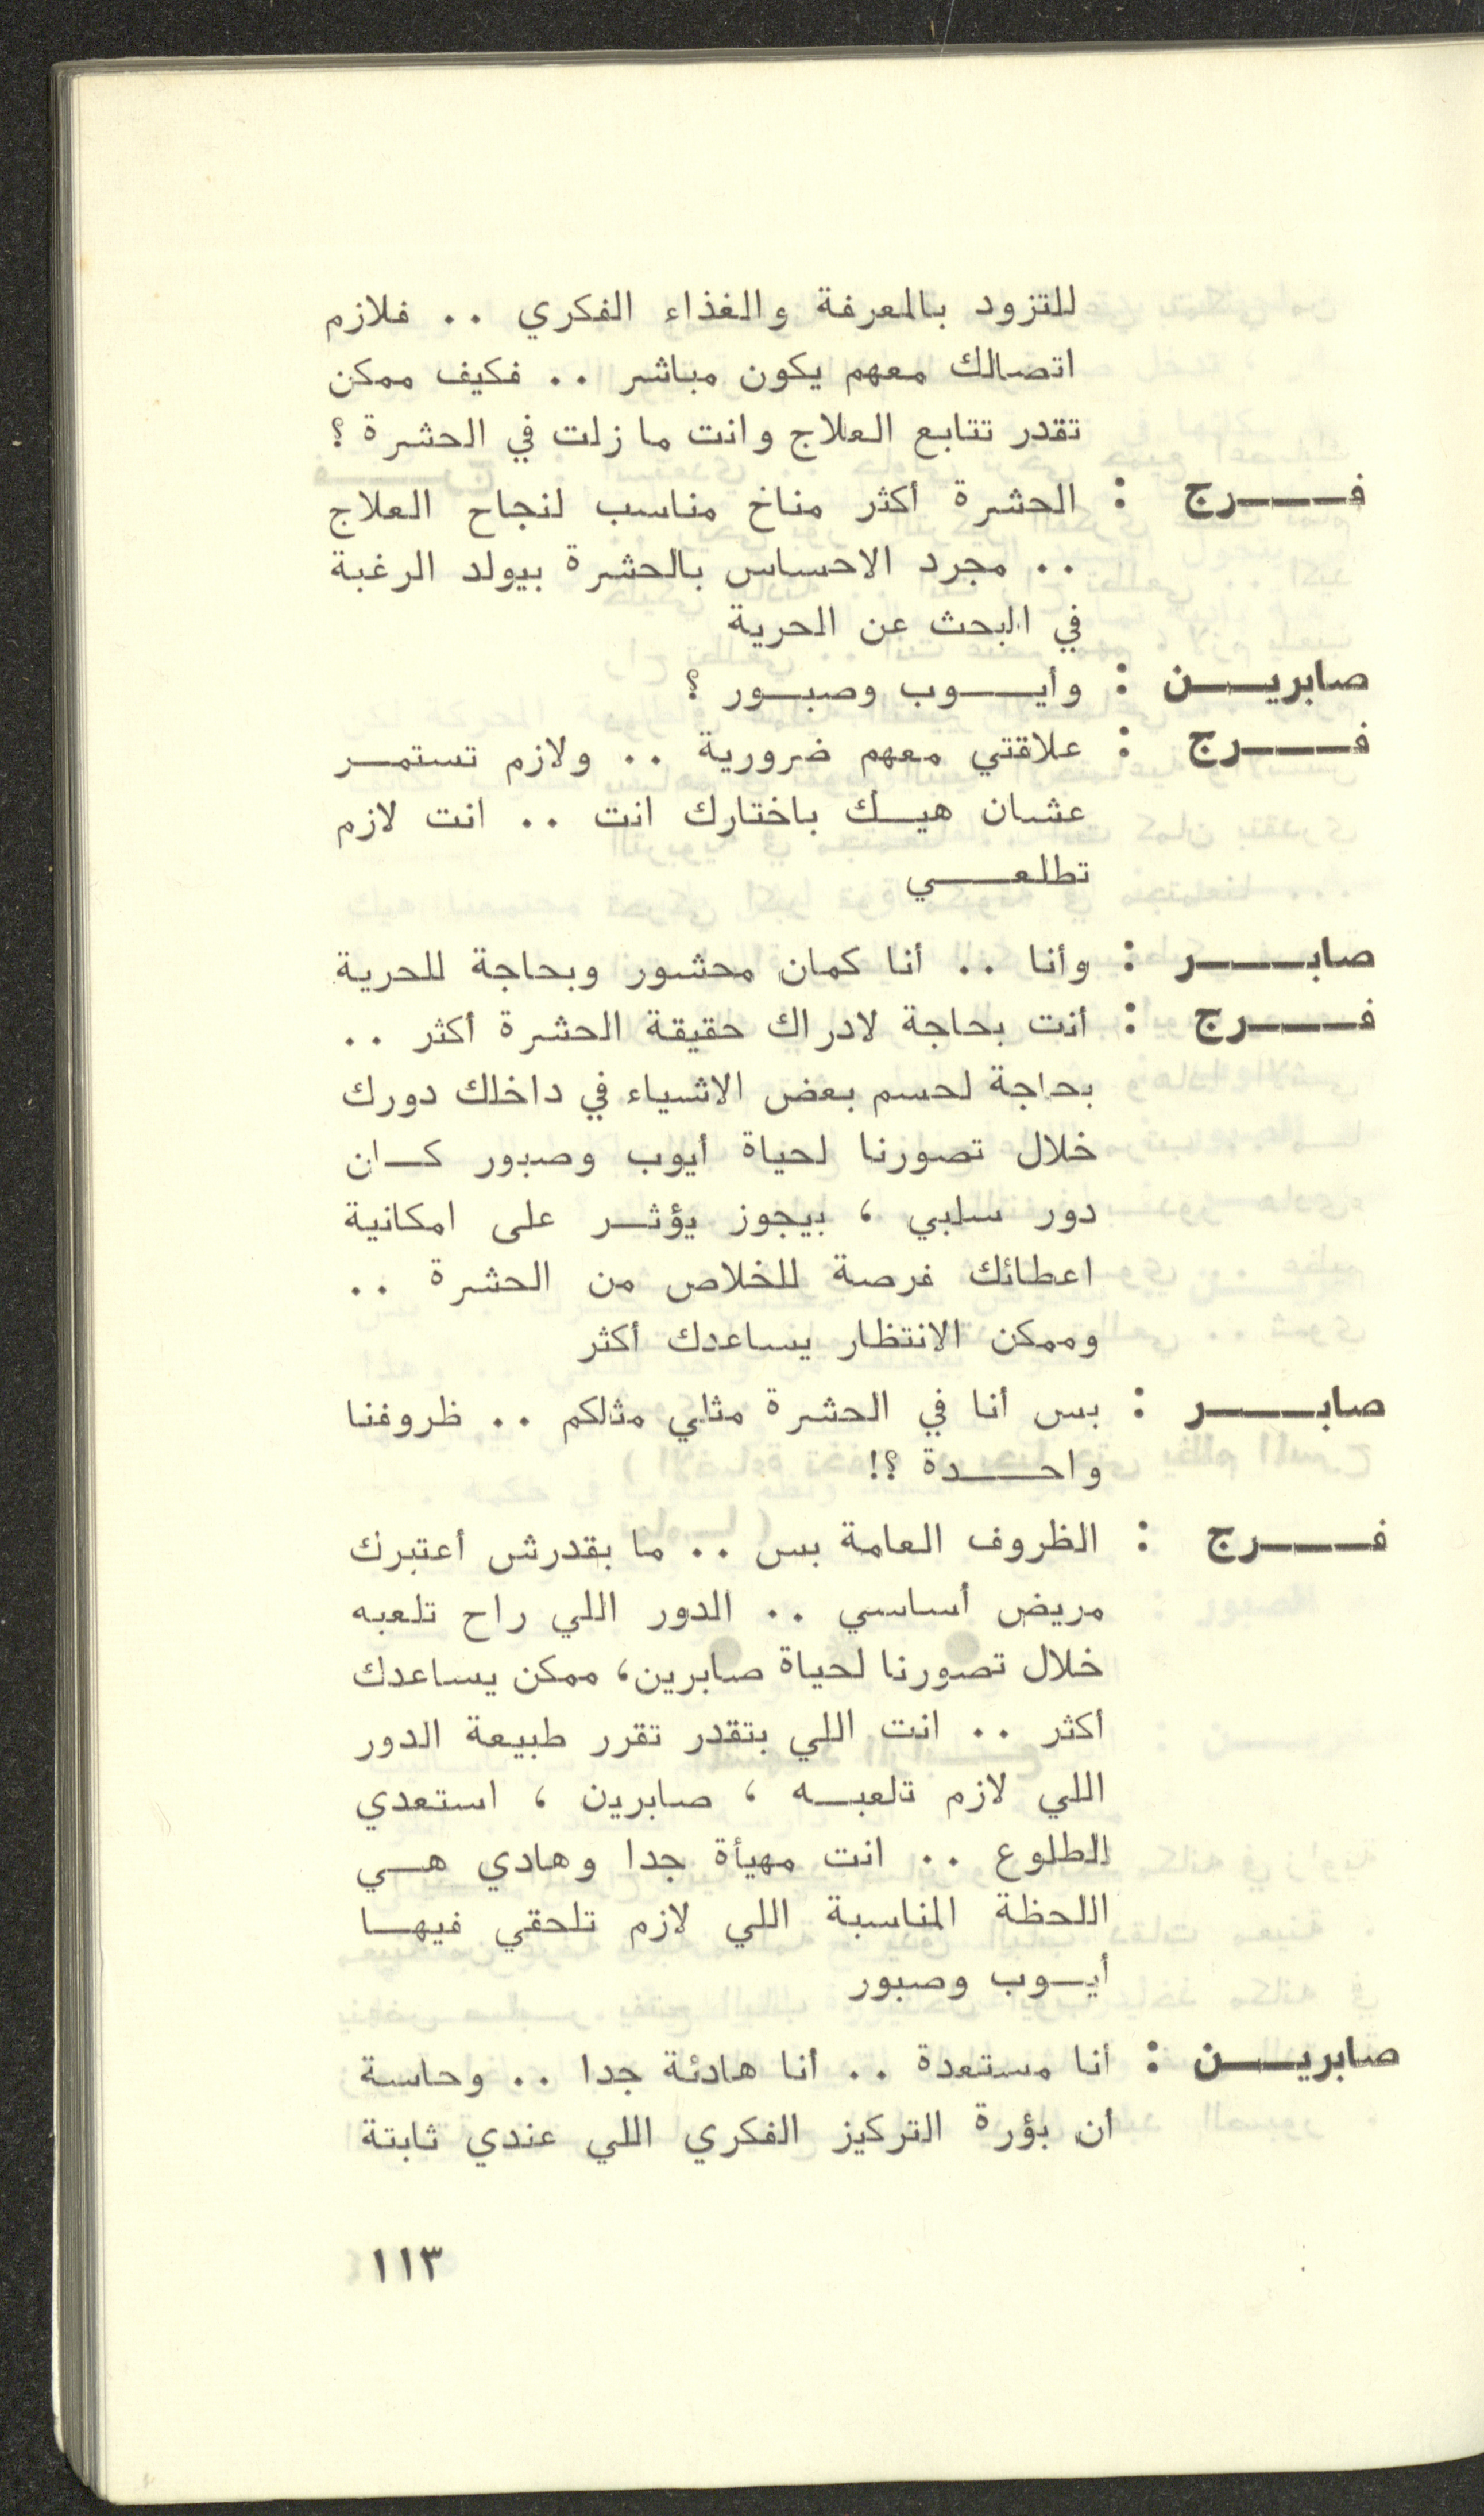 للتزود بالمعرفة والغذاء الفكري .. فلازم
اتصالك معهم يكون مباشر .. فكيف ممكن
تقدر تتابع العلاج وانت ما زلت في الحشرة ؟
فـــرج : الحشرة أكثر مناخ مناسب لنجاح العلاج
.. مجرد الاحساس بالحشرة بيولد الرغبة
في البحث عن الحرية
صابريـــن : وأيـــوب وصبــور ؟
فـــرج : علاقتي معهم ضرورية .. ولازم تستمــر
عشان هيــك باختارك انت .. انت لازم
تطلعــــي
صابـــر : وأنا .. أنا كمان محشور وبحاجة للحرية
فـــرج : أنت بحاجة لادراك حقيقة الحشرة أكثر ..
بحاجة لحسم بعض الاشياء في داخلك دورك
خلال تصورنا لحياة أيوب وصبور كــان
دور سلبي ، بيجوز يؤثــر على امكانية
اعطائك فرصة للخلاص من الحشرة ..
وممكن الانتظار يساعدك أكثر
صابـــر : بس أنا في الحشرة مثلي مثلكم .. ظروفنا
واحـــدة ؟!
فـــرج : الظروف العامة بس .. ما بقدرش أعتبرك
مريض أساسي .. الدور اللي راح تلعبه
خلال تصورنا لحياة صابرين، ممكن يساعدك
أكثر .. انت اللي بتقدر تقرر طبيعة الدور
اللي لازم تلعبــه ، صابرين ، استعدي
للطلوع .. انت مهيأة جدا وهادي هــي
اللحظة المناسبة اللي لازم تلحقي فيهــا
أيــوب وصبور
صابريـــن : أنا مستعدة .. أنا هادئة جدا .. وحاسة
أن بؤرة التركيز الفكري اللي عندي ثابتة
١١٣